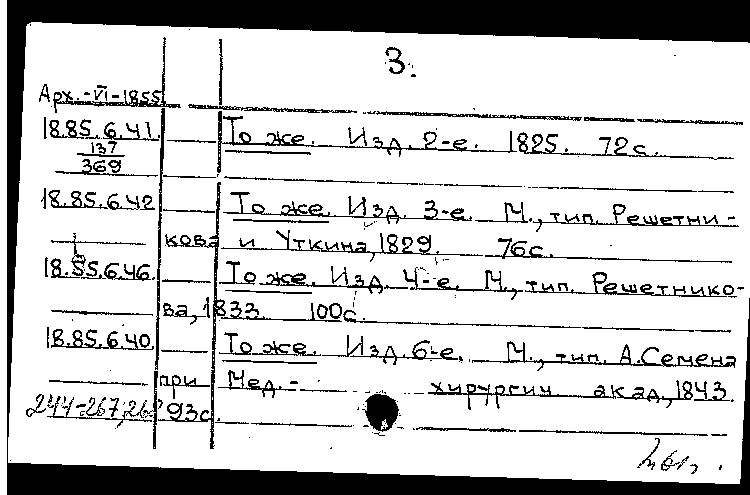 3.
Арх.-VI-1855
18.85.6.41. То же. Изд. 2-е. 1825. 72с.
137
369
18.85.6.42 То же. Изд. 3-е. М., тип. Решетни-
кова и Уткина, 1829. 76с.
18.85.6.46. То же. Изд. 4-е. М., тип. Решетнико-
ва, 1833. 100с.
18.85.6.40. То же. Изд. 6-е. М., тип. А.Семена
при Мед.- хирургич. акад., 1843.
93с